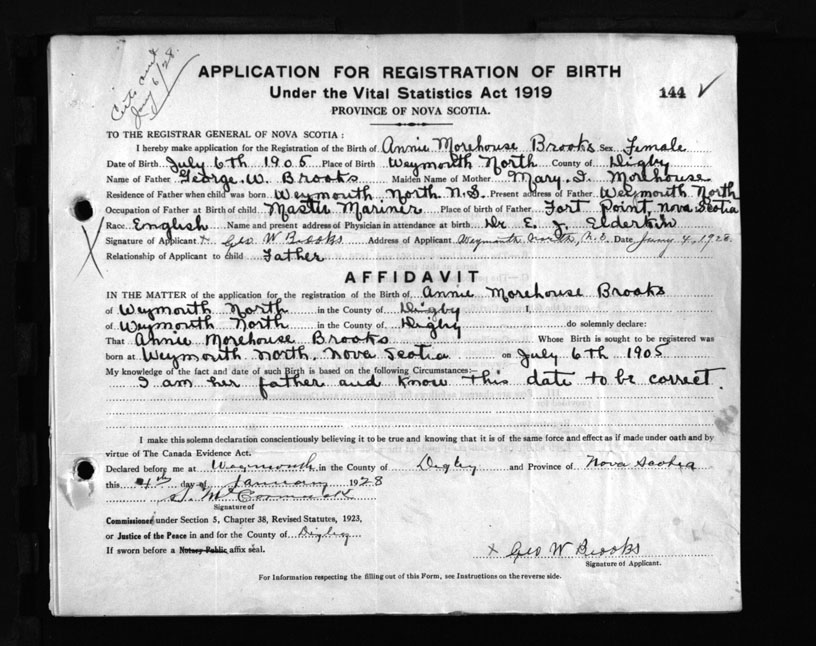 Certs and
Jany 6/28.
APPLICATION FOR REGISTRATION OF BIRTH
Under the Vital Statistics Act 1919
144 ✓
PROVINCE OF NOVA SCOTIA.
TO THE REGISTRAR GENERAL OF NOVA SCOTIA :
I hereby make application for the Registration of the Birth of Annie Morehouse Brooks Sex Female
Date of Birth July 6th 1905 Place of Birth Weymouth North County of Digby
Name of Father George W. Brooks Maiden Name of Mother Mary I. Morehouse
Residence of Father when child was born Weymouth North N.S. Present address of Father Weymouth North
Occupation of Father at Birth of child Master Mariner Place of birth of Father Fort Point, Nova Scotia
Race English Name and present address of Physician in attendance at birth Dr E. J. Elderkin
Signature of Applicant x Geo W Brooks Address of Applicant Weymouth North, N.S. Date Jany 4, 1928.
Relationship of Applicant to child Father
AFFIDAVIT
IN THE MATTER of the application for the registration of the Birth of Annie Morehouse Brooks
of Weymouth North in the County of Digby I,
of Weymouth North in the County of Digby do solemnly declare:
That Annie Morehouse Brooks Whose Birth is sought to be registered was
born at Weymouth North. Nova Scotia on July 6th 1905
My knowledge of the fact and date of such Birth is based on the following Circumstances:—
I am her father and know this date to be correct.
I make this solemn declaration conscientiously believing it to be true and knowing that it is of the same force and effect as if made under oath and by
virtue of The Canada Evidence Act.
Declared before me at Weymouth in the County of Digby and Province of Nova Scotia
this 4th day of January 1928
McCormack
Signature of
Commissioner under Section 5, Chapter 38, Revised Statutes, 1923,
or Justice of the Peace in and for the County of Digby
If sworn before a Notary Public affix seal.
x Geo W Brooks
Signature of Applicant.
For Information respecting the filling out of this Form, see Instructions on the reverse side.